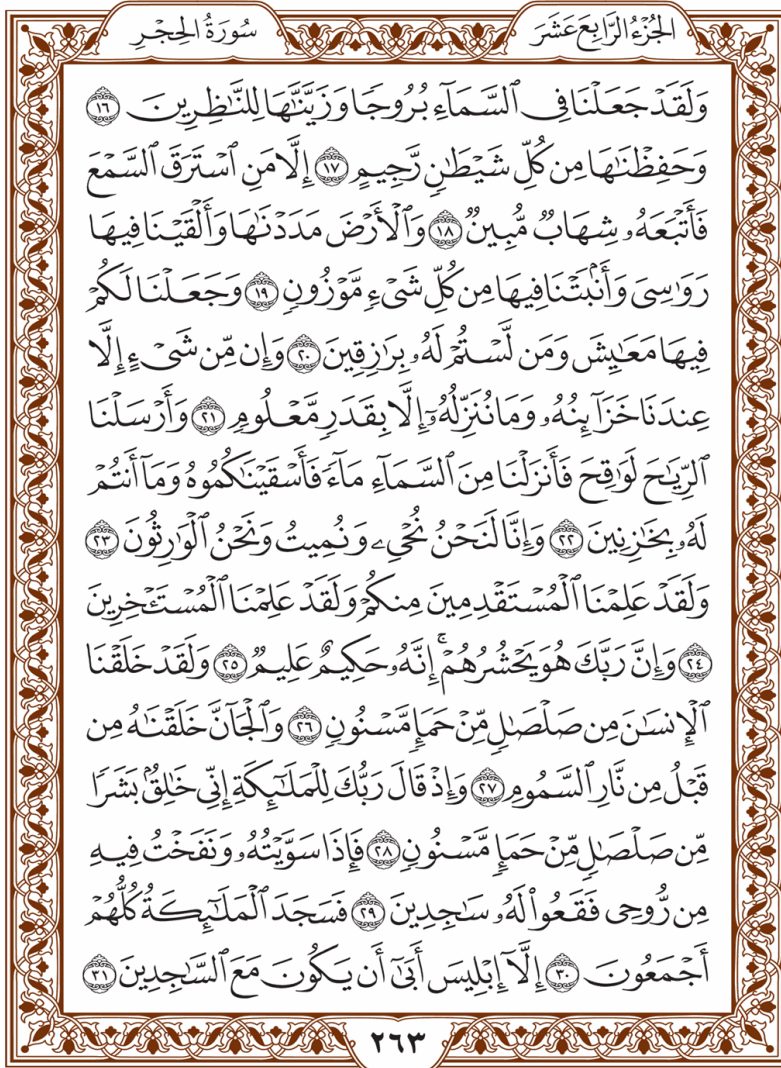 الجُزْءُ الرَّابِعَ عَشَرَ
سُورَةُ الحِجْرِ
وَلَقَدۡ جَعَلۡنَا فِي ٱلسَّمَآءِ بُرُوجٗا وَزَيَّنَّٰهَا لِلنَّٰظِرِينَ ١٦
وَحَفِظۡنَٰهَا مِن كُلِّ شَيۡطَٰنٖ رَّجِيمٍ ١٧ إِلَّا مَنِ ٱسۡتَرَقَ ٱلسَّمۡعَ
فَأَتۡبَعَهُۥ شِهَابٞ مُّبِينٞ ١٨ وَٱلۡأَرۡضَ مَدَدۡنَٰهَا وَأَلۡقَيۡنَا فِيهَا
رَوَٰسِيَ وَأَنۢبَتۡنَا فِيهَا مِن كُلِّ شَيۡءٖ مَّوۡزُونٖ ١٩ وَجَعَلۡنَا لَكُمۡ
فِيهَا مَعَٰيِشَ وَمَن لَّسۡتُمۡ لَهُۥ بِرَٰزِقِينَ ٢٠ وَإِن مِّن شَيۡءٍ إِلَّا
عِندَنَا خَزَآئِنُهُۥ وَمَا نُنَزِّلُهُۥٓ إِلَّا بِقَدَرٖ مَّعۡلُومٖ ٢١ وَأَرۡسَلۡنَا
ٱلرِّيَٰحَ لَوَٰقِحَ فَأَنزَلۡنَا مِنَ ٱلسَّمَآءِ مَآءٗ فَأَسۡقَيۡنَٰكُمُوهُ وَمَآ أَنتُمۡ
لَهُۥ بِخَٰزِنِينَ ٢٢ وَإِنَّا لَنَحۡنُ نُحۡيِۦ وَنُمِيتُ وَنَحۡنُ ٱلۡوَٰرِثُونَ ٢٣
وَلَقَدۡ عَلِمۡنَا ٱلۡمُسۡتَقۡدِمِينَ مِنكُمۡ وَلَقَدۡ عَلِمۡنَا ٱلۡمُسۡتَـٔۡخِرِينَ
٢٤ وَإِنَّ رَبَّكَ هُوَ يَحۡشُرُهُمۡۚ إِنَّهُۥ حَكِيمٌ عَلِيمٞ ٢٥ وَلَقَدۡ خَلَقۡنَا
ٱلۡإِنسَٰنَ مِن صَلۡصَٰلٖ مِّنۡ حَمَإٖ مَّسۡنُونٖ ٢٦ وَٱلۡجَآنَّ خَلَقۡنَٰهُ مِن
قَبۡلُ مِن نَّارِ ٱلسَّمُومِ ٢٧ وَإِذۡ قَالَ رَبُّكَ لِلۡمَلَٰٓئِكَةِ إِنِّي خَٰلِقُۢ بَشَرٗا
مِّن صَلۡصَٰلٖ مِّنۡ حَمَإٖ مَّسۡنُونٖ ٢٨ فَإِذَا سَوَّيۡتُهُۥ وَنَفَخۡتُ فِيهِ
مِن رُّوحِي فَقَعُواْ لَهُۥ سَٰجِدِينَ ٢٩ فَسَجَدَ ٱلۡمَلَٰٓئِكَةُ كُلُّهُمۡ
أَجۡمَعُونَ ٣٠ إِلَّآ إِبۡلِيسَ أَبَىٰٓ أَن يَكُونَ مَعَ ٱلسَّٰجِدِينَ ٣١
٢٦٣